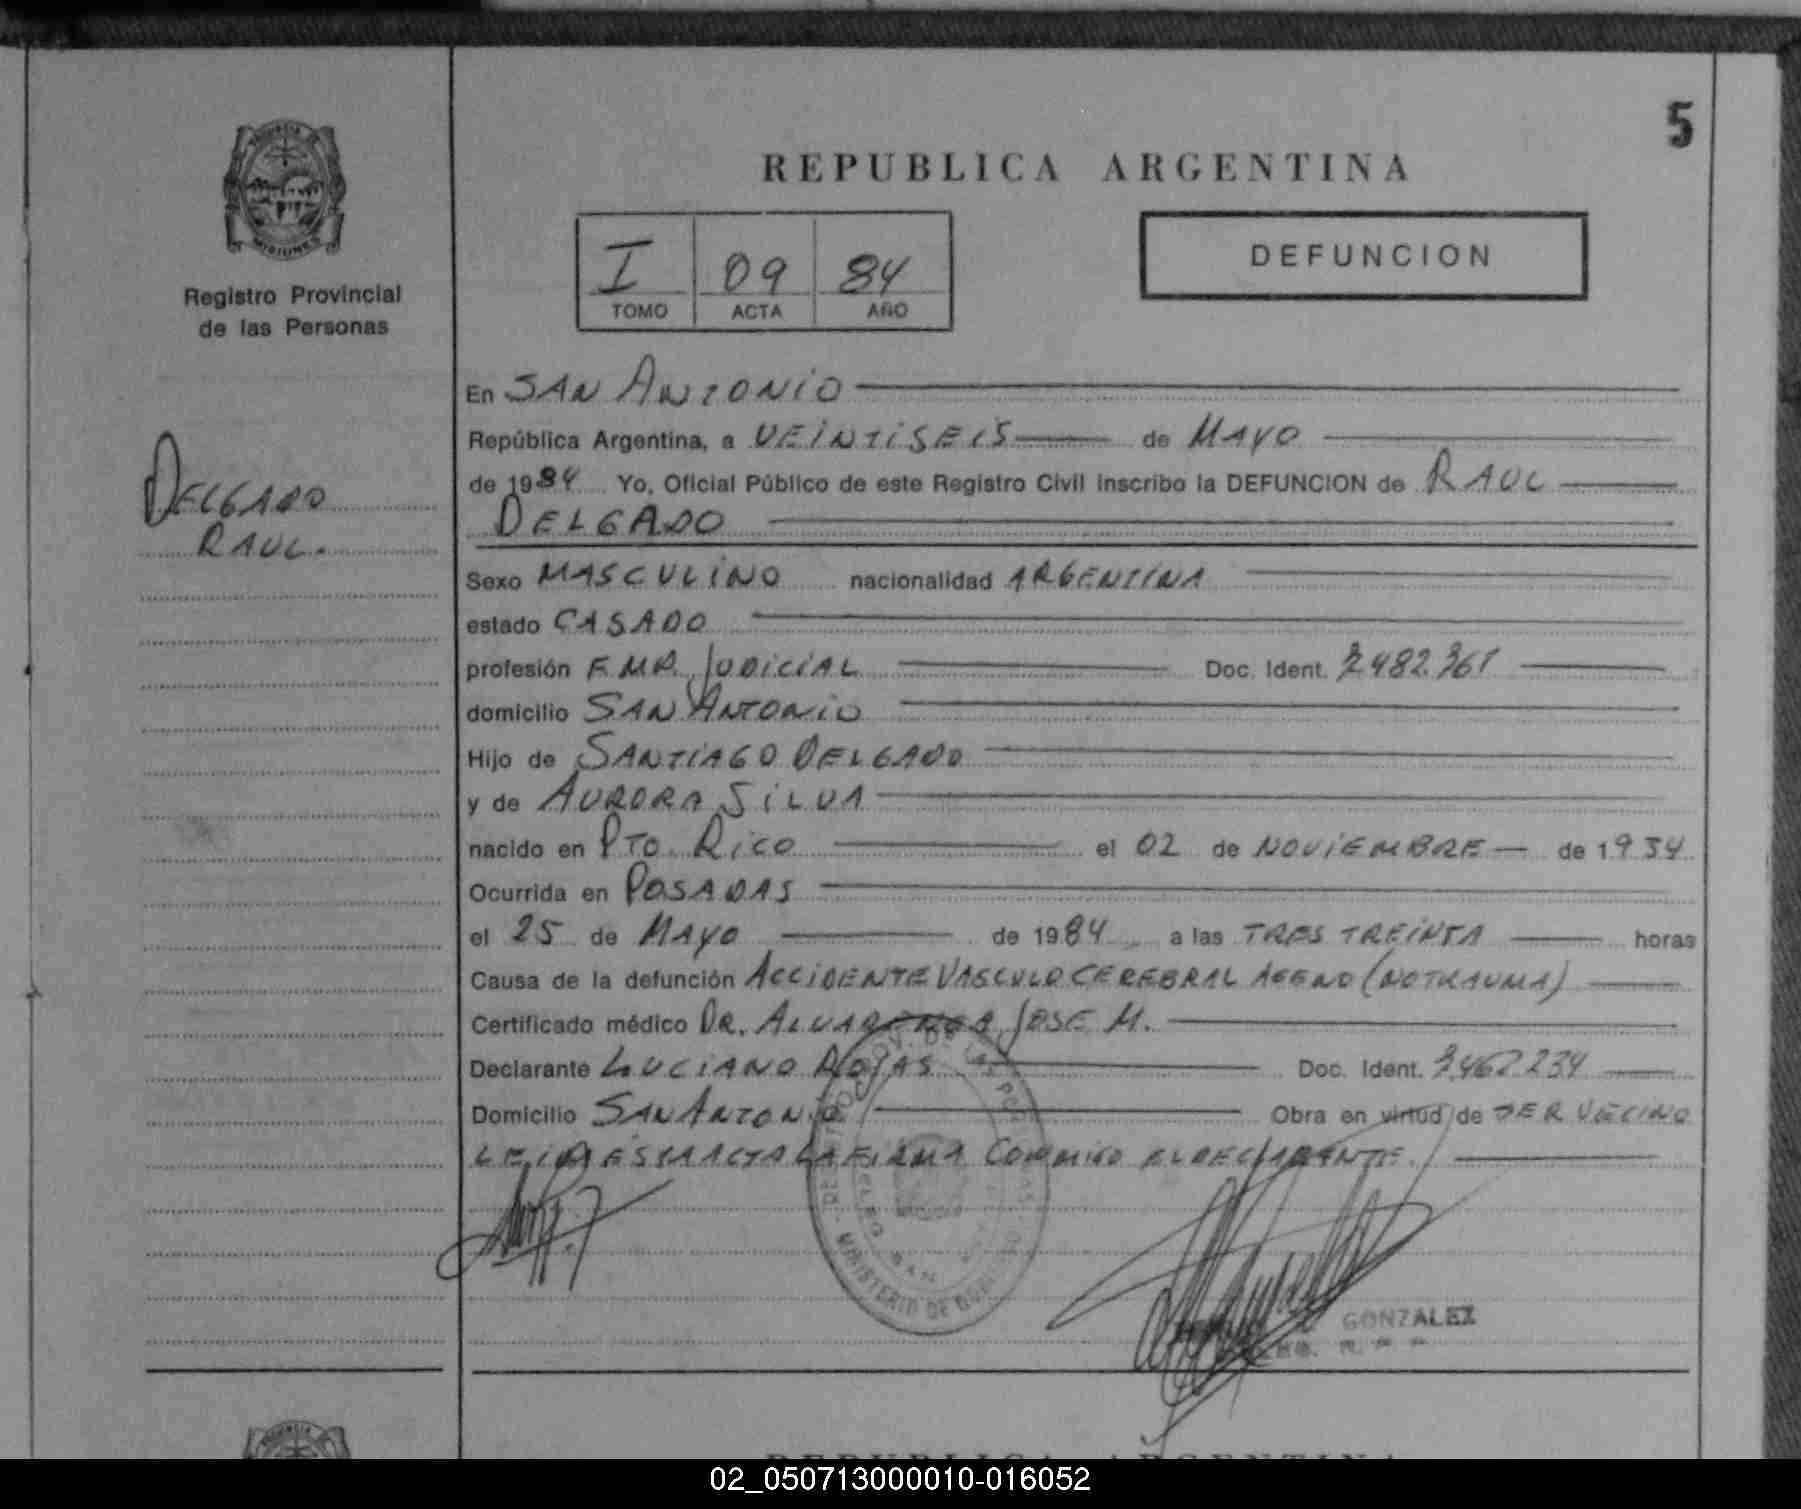 5
REPUBLICA ARGENTINA
PROVINCIA DE
MISIONES
Registro Provincial
de las Personas
I 09 84
TOMO ACTA AÑO
DEFUNCION
DELGADO
RAUL.
En SAN ANTONIO
República Argentina, a VEINTISEIS de MAYO
de 1984 Yo, Oficial Público de este Registro Civil inscribo la DEFUNCION de RAUL
DELGADO
Sexo MASCULINO nacionalidad ARGENTINA
estado CASADO
profesión EMP. JUDICIAL Doc. Ident. 7.482.361
domicilio SAN ANTONIO
Hijo de SANTIAGO DELGADO
y de AURORA SILVA
nacido en PTO. RICO el 02 de NOVIEMBRE de 1934
Ocurrida en POSADAS
el 25 de MAYO de 1984 a las TRES TREINTA horas
Causa de la defunción ACCIDENTE VASCULO CEREBRAL AGENO (NO TRAUMA)
Certificado médico DR. ALVARENGA JOSE M.
Declarante LUCIANO ROJAS Doc. Ident. 7.462.234
Domicilio SAN ANTONIO Obra en virtud de SER VECINO
LEIDA ESTA ACTA LA FIRMA CONMIGO EL DECLARANTE.
MINISTERIO DE GOBIERNO
DELEG. SAN
GONZALEZ
REPUBLICA ARGENTINA
02_050713000010-016052